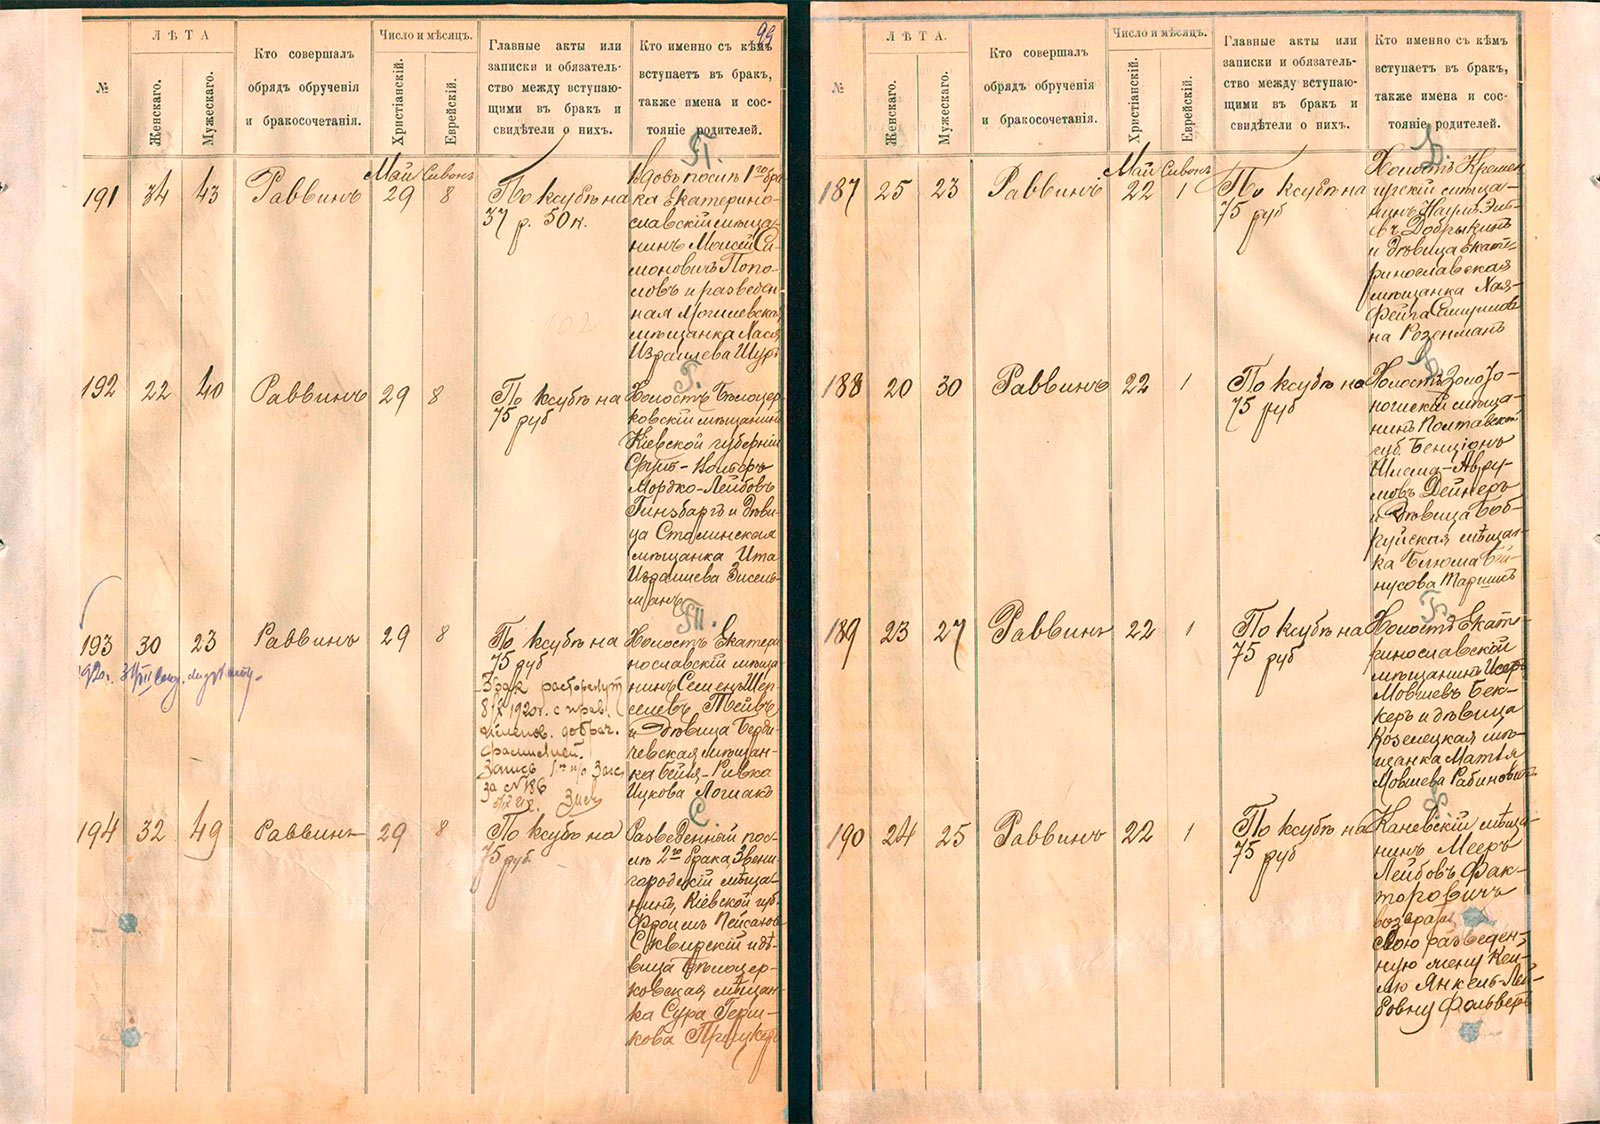 99
№
ЛѢТА
Женскаго.
Мужескаго.
Кто совершалъ
обрядъ обрученія
и бракосочетанія.
Число и мѣсяцъ.
Христіанскій.
Еврейскій.
Главные акты или
записки и обязатель-
ство между вступаю-
щими въ бракъ и
свидѣтели о нихъ.
Кто именно съ кѣмъ
вступаетъ въ бракъ,
также имена и сос-
тояніе родителей.
П.
Май Сивонъ
191 34 43 Раввинъ 29 8
По ксубѣ на
37 р. 50 к.
Вдовъ послѣ 1го бра-
ка Екатерино-
славскій мѣща-
нинъ Моисей Си-
моновичъ Попо-
ловъ и разведен-
ная Могилевская
мѣщанка Хася
Израилева Шуръ
Г.
192 22 40 Раввинъ 29 8
По ксубѣ на
75 руб
Холостъ Бѣлоцер-
ковскій мѣщанинъ
Кіевской губерніи
Сруль-Волферъ
Мордко-Лейбовъ
Гинзбургъ и дѣви-
ца Сталинская
мѣщанка Ита
Израилева Зисель-
манъ
Т.
193 30 23 Раввинъ 29 8
По ксубѣ на
75 руб
Брак расторгнут
8/IX 1920г. с прав.
именов. добрач.
фамилией.
Запись
за №186
Холостъ Екатери-
нославскій мѣща-
нинъ Семенъ Шеп-
селевъ Тейвъ
и дѣвица Берди-
чевская мѣщан-
ка Бейля-Ривка
Ицкова Логиакъ
С.
194 32 49 Раввинъ 29 8
По ксубѣ на
75 руб
Разведенный пос-
лѣ 2го брака Звени-
городскій мѣща-
нинъ, Кіевской губ.
Фроимъ Пейсаховъ
Сквирскій и дѣ-
вица Бѣлоцер-
ковская мѣщан-
ка Сура Герш-
кова Прицкеръ
№
ЛѢТА.
Женскаго.
Мужескаго.
Кто совершалъ
обрядъ обрученія
и бракосочетанія.
Число и мѣсяцъ.
Христіанскій.
Еврейскій.
Главные акты или
записки и обязатель-
ство между вступаю-
щими въ бракъ и
свидѣтели о нихъ.
Кто именно съ кѣмъ
вступаетъ въ бракъ,
также имена и сос-
тояніе родителей.
Д.
Май Сивонъ
187 25 23 Раввинъ 22 1
По ксубѣ на
75 руб
Холостъ Кремен-
чугскій мѣща-
нинъ Наумъ Эль-
евъ Добрыкинъ
и дѣвица Екате-
ринославская
мѣщанка Хая-
Фейга Сшулов-
на Розенманъ
188 20 30 Раввинъ 22 1
По ксубѣ на
75 руб
Холостъ Золото-
ношскій мѣща-
нинъ Полтавской
губ. Бенціонъ
Шлема-Авру-
мовъ Дейнеръ
и дѣвица Боб-
руйская мѣщан-
ка Блюма Бей-
нусова Таршисъ
Б.
189 23 27 Раввинъ 22 1
По ксубѣ на
75 руб
Холостъ Екате-
ринославскій
мѣщанинъ Исеръ
Мовшевъ Бек-
керъ и дѣвица
Козелецкая мѣ-
щанка Матля
Мовшева Рабиновичъ
190 24 25 Раввинъ 22 1
По ксубѣ на
75 руб
Каневскій мѣща-
нинъ Мееръ
Лейбовъ Фак-
торовичъ
возврат
свою разведен-
ную жену Кей-
лю Янкель-Лей-
бовну Фольверъ